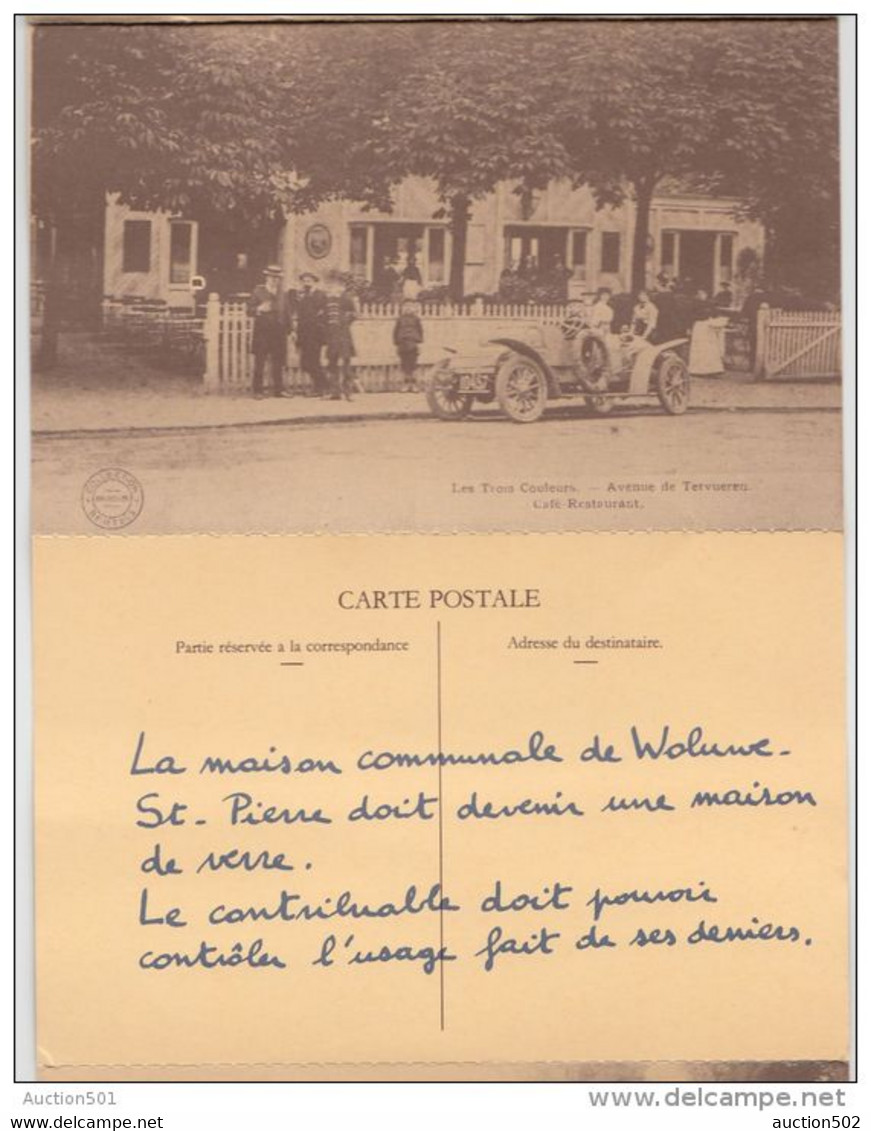 Les Trois Couleurs. — Avenue de Tervueren.
Café-Restaurant.
COLLECTION
CARTE POSTALE
Partie réservée a la correspondance
Adresse du destinataire.
La maison communale de Woluwe-
St-Pierre doit devenir une maison
de verre.
Le contribuable doit pouvoir
contrôler l'usage fait de ses deniers.
Auction501
www.delcampe.net
auction501.com
auction502